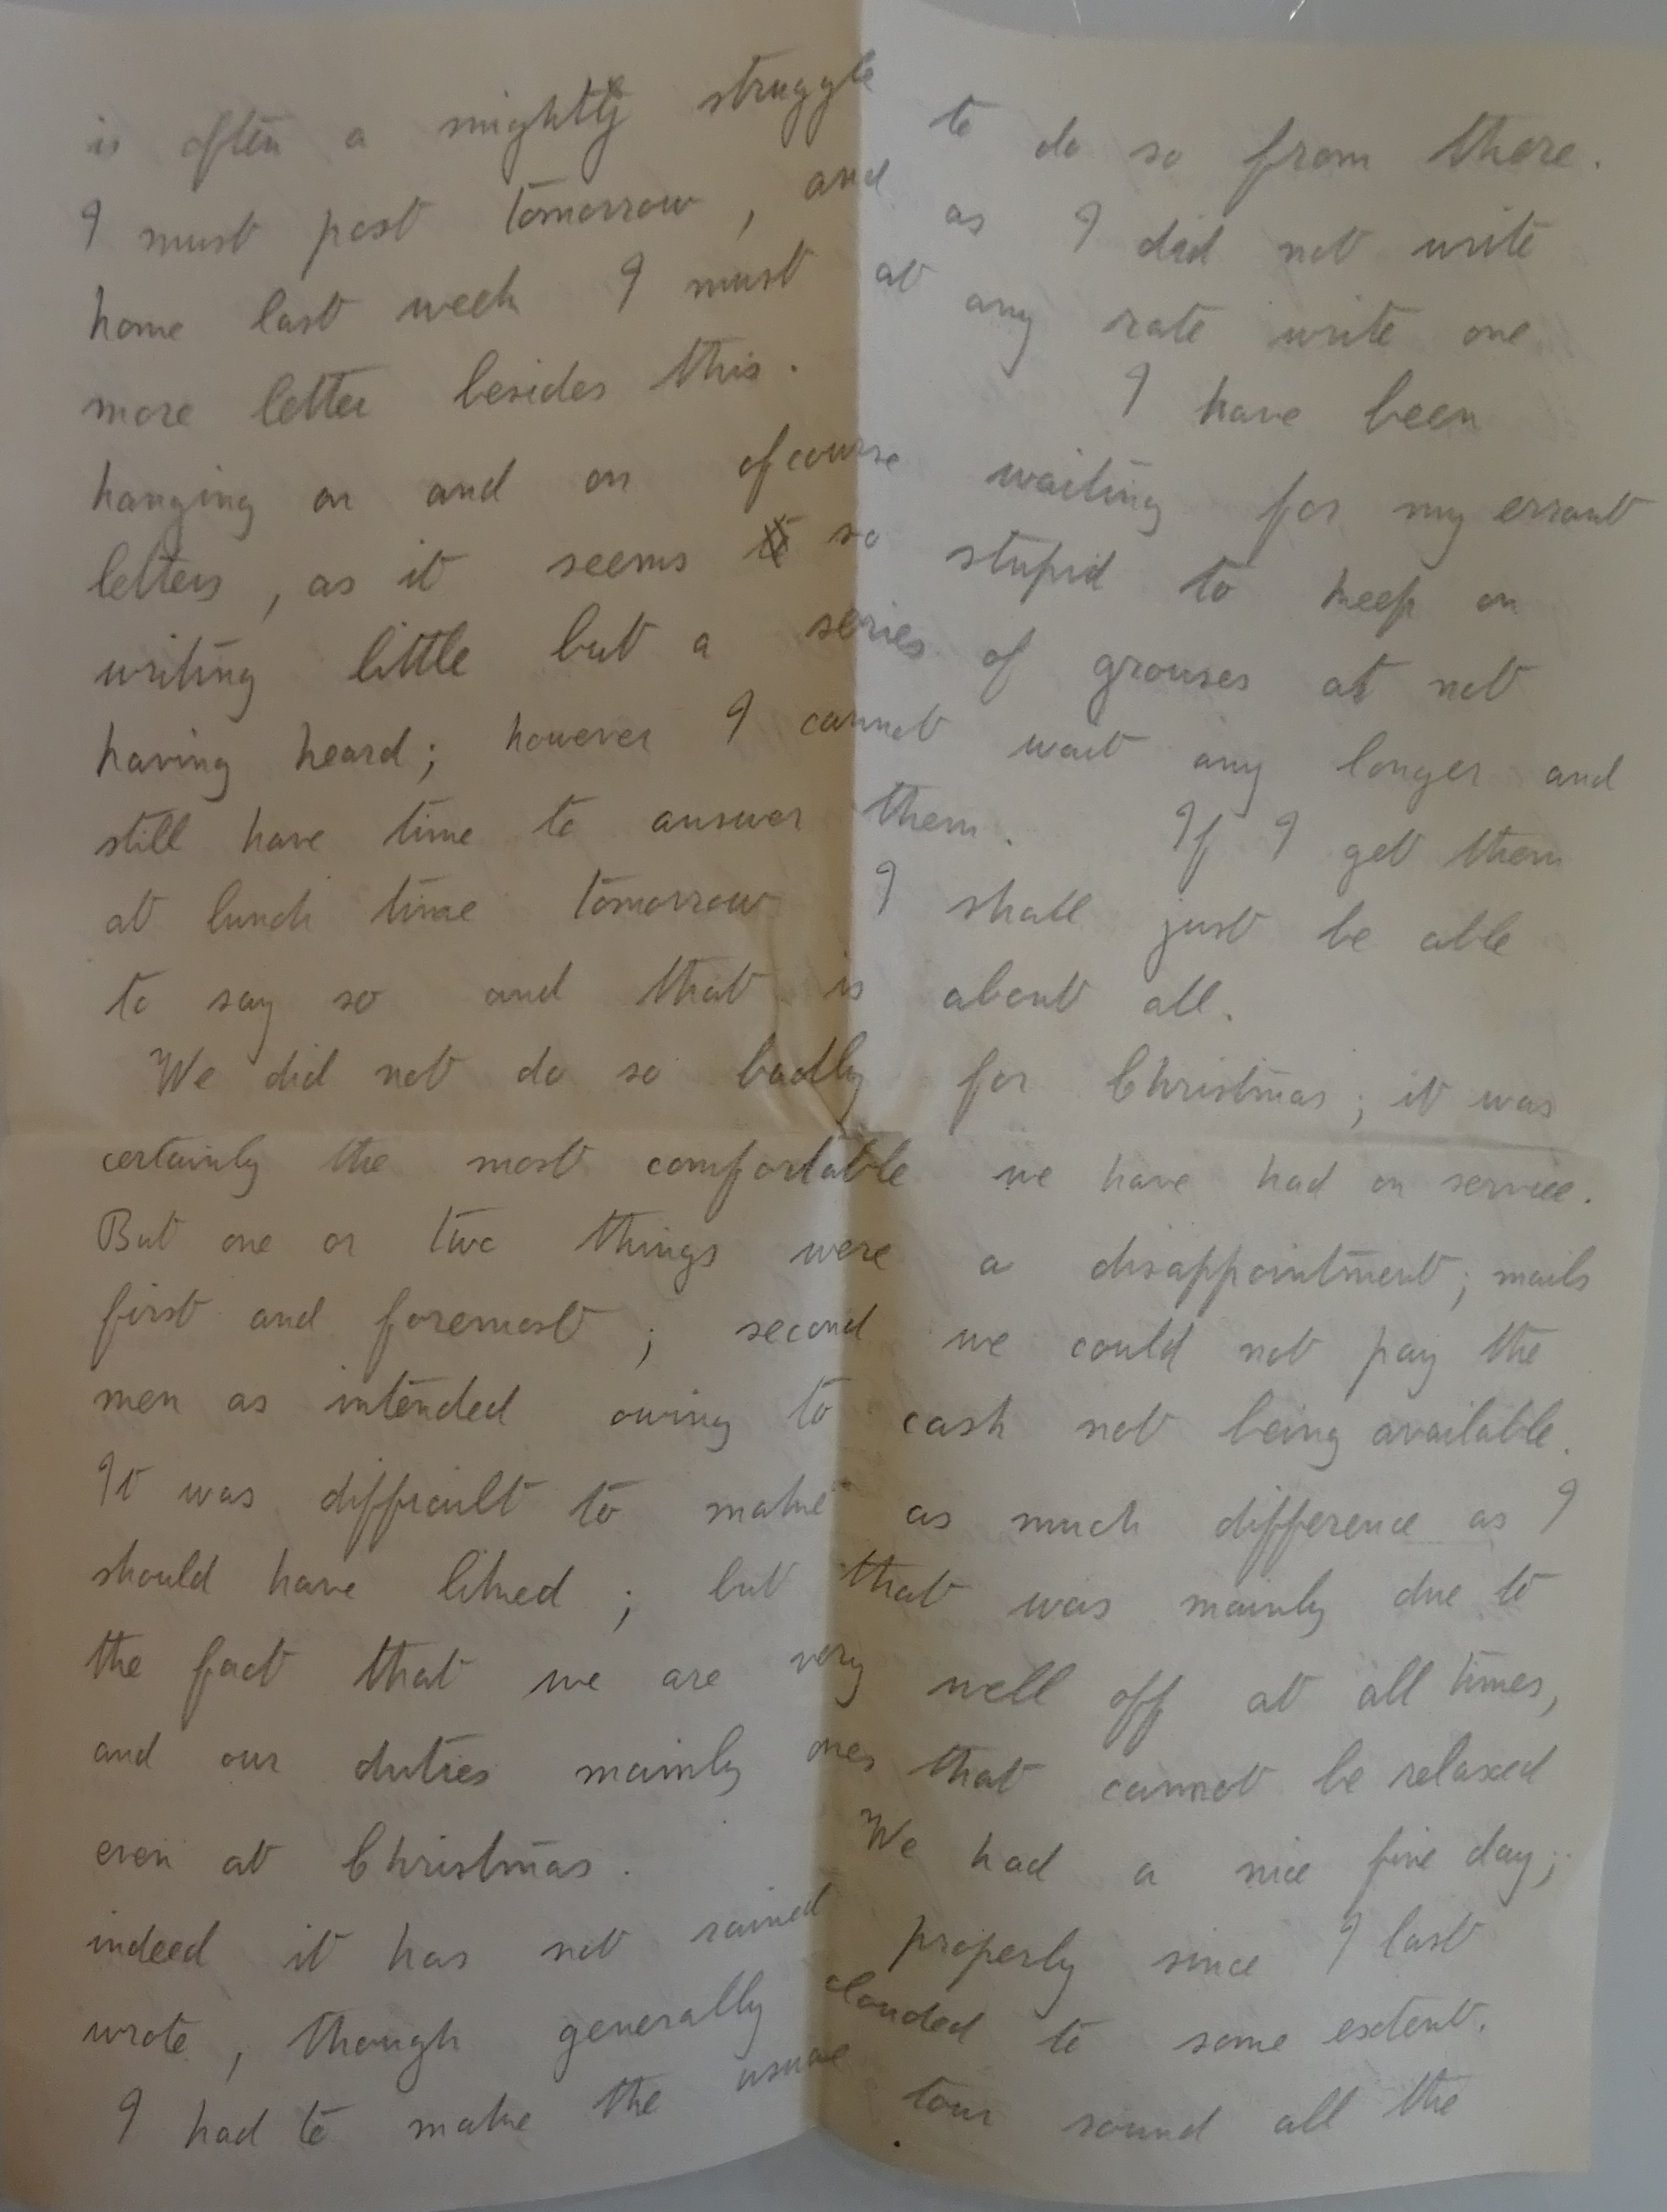 is often a mighty struggle to do so from there.
I must post tomorrow, and as I did not write
home last week I must at any rate write one
more letter besides this. I have been
hanging on and on ofcourse waiting for my errant
letters, as it seems so stupid to keep on
writing little but a series of grouses at not
having heard; however I cannot wait any longer and
still have time to answer them. If I get them
at lunch time tomorrow I shall just be able
to say so and that is about all.
We did not do so badly for Christmas; it was
certainly the most comfortable we have had on service.
But one or two things were a disappointment; mails
first and foremost; second we could not pay the
men as intended owing to cash not being available.
It was difficult to make as much difference as I
should have liked; but that was mainly due to
the fact that we are very well off at all times,
and our duties mainly ones that cannot be relaxed
even at Christmas. We had a nice fine day;
indeed it has not rained properly since I last
wrote, though generally clouded to some extent.
I had to make the usual tour round all the